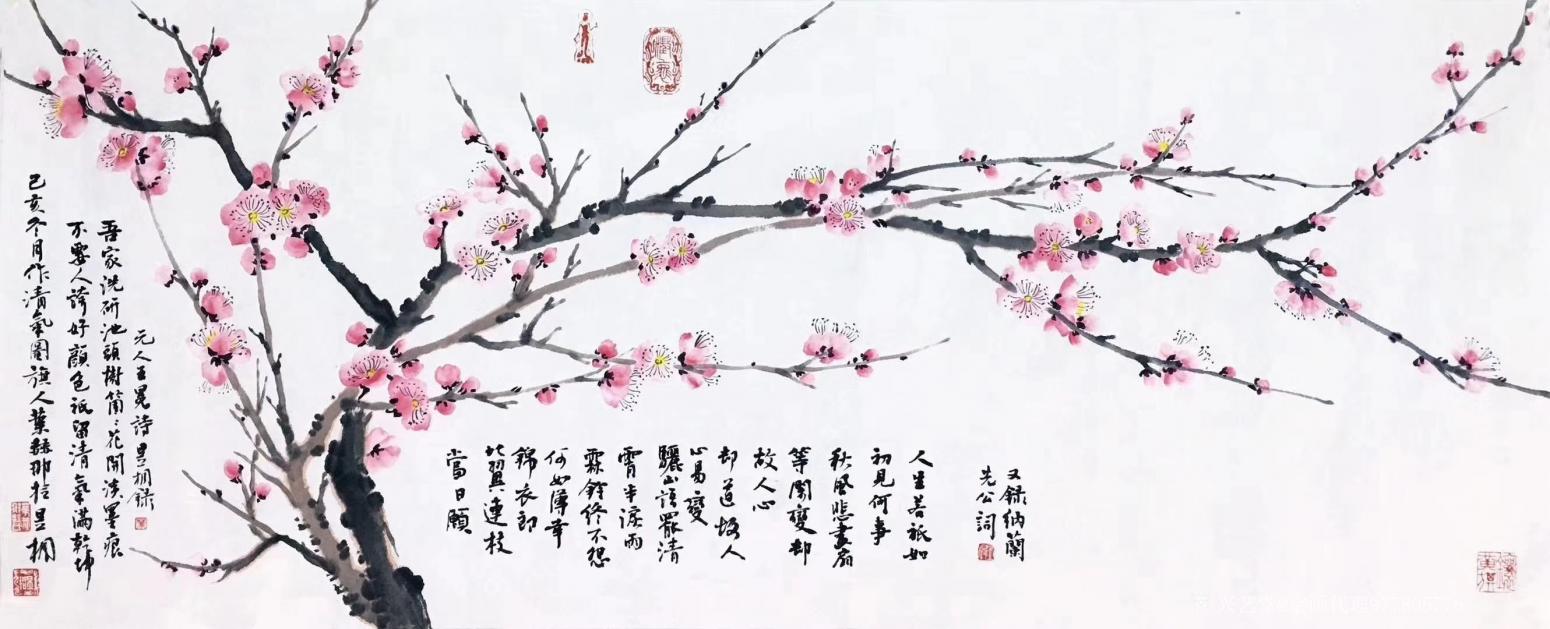 又錄納蘭
先公詞
人生若祇如
初見何事
秋風悲畫扇
等閒變却
故人心
却道故人
心易變
驪山語罷清
宵半淚雨
霖鈴終不怨
何如薄幸
錦衣郎
比翼連枝
當日願
元人王冕詩昱桐錄
吾家洗研池頭樹箇〻花開淡墨痕
不要人誇好顏色祇留清氣滿乾坤
己亥冬月作清氣圖旗人葉赫那拉昱桐